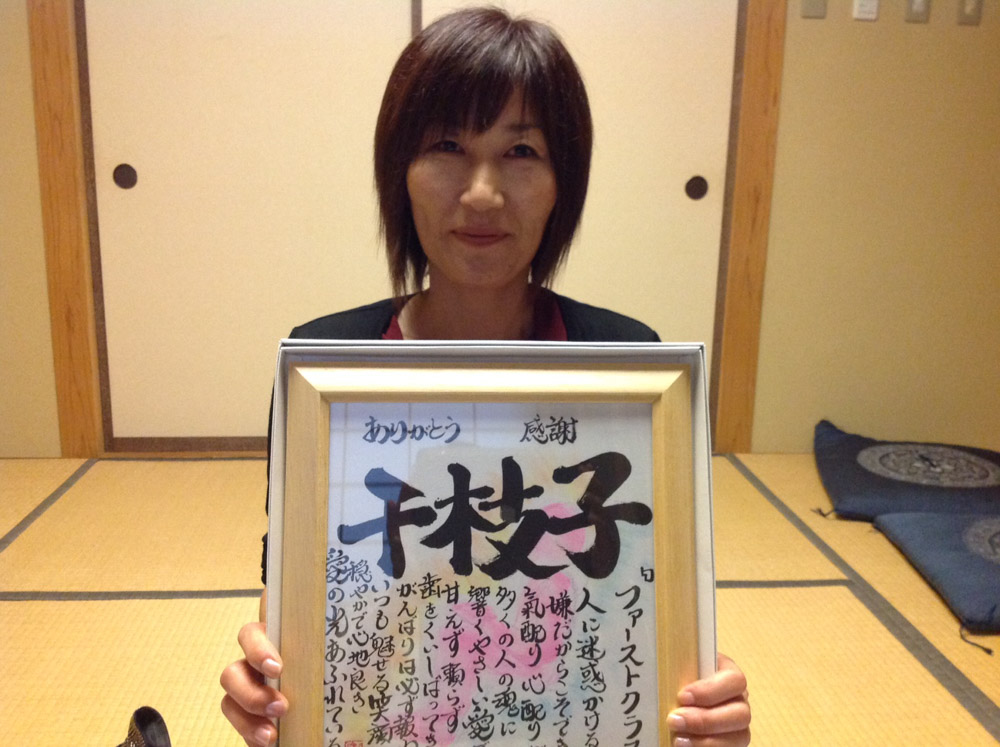 ありがとう 感謝
千枝子
ファーストクラ
人に迷惑かける
嫌だからこそでき
氣配り心配り
多くの人の魂に
響くやさしい愛
甘えず頼らず
歯をくいしばってき
がんばりは必ず報わ
いつも魅せる笑顔
穏やかで心地良き
愛の光あふれている